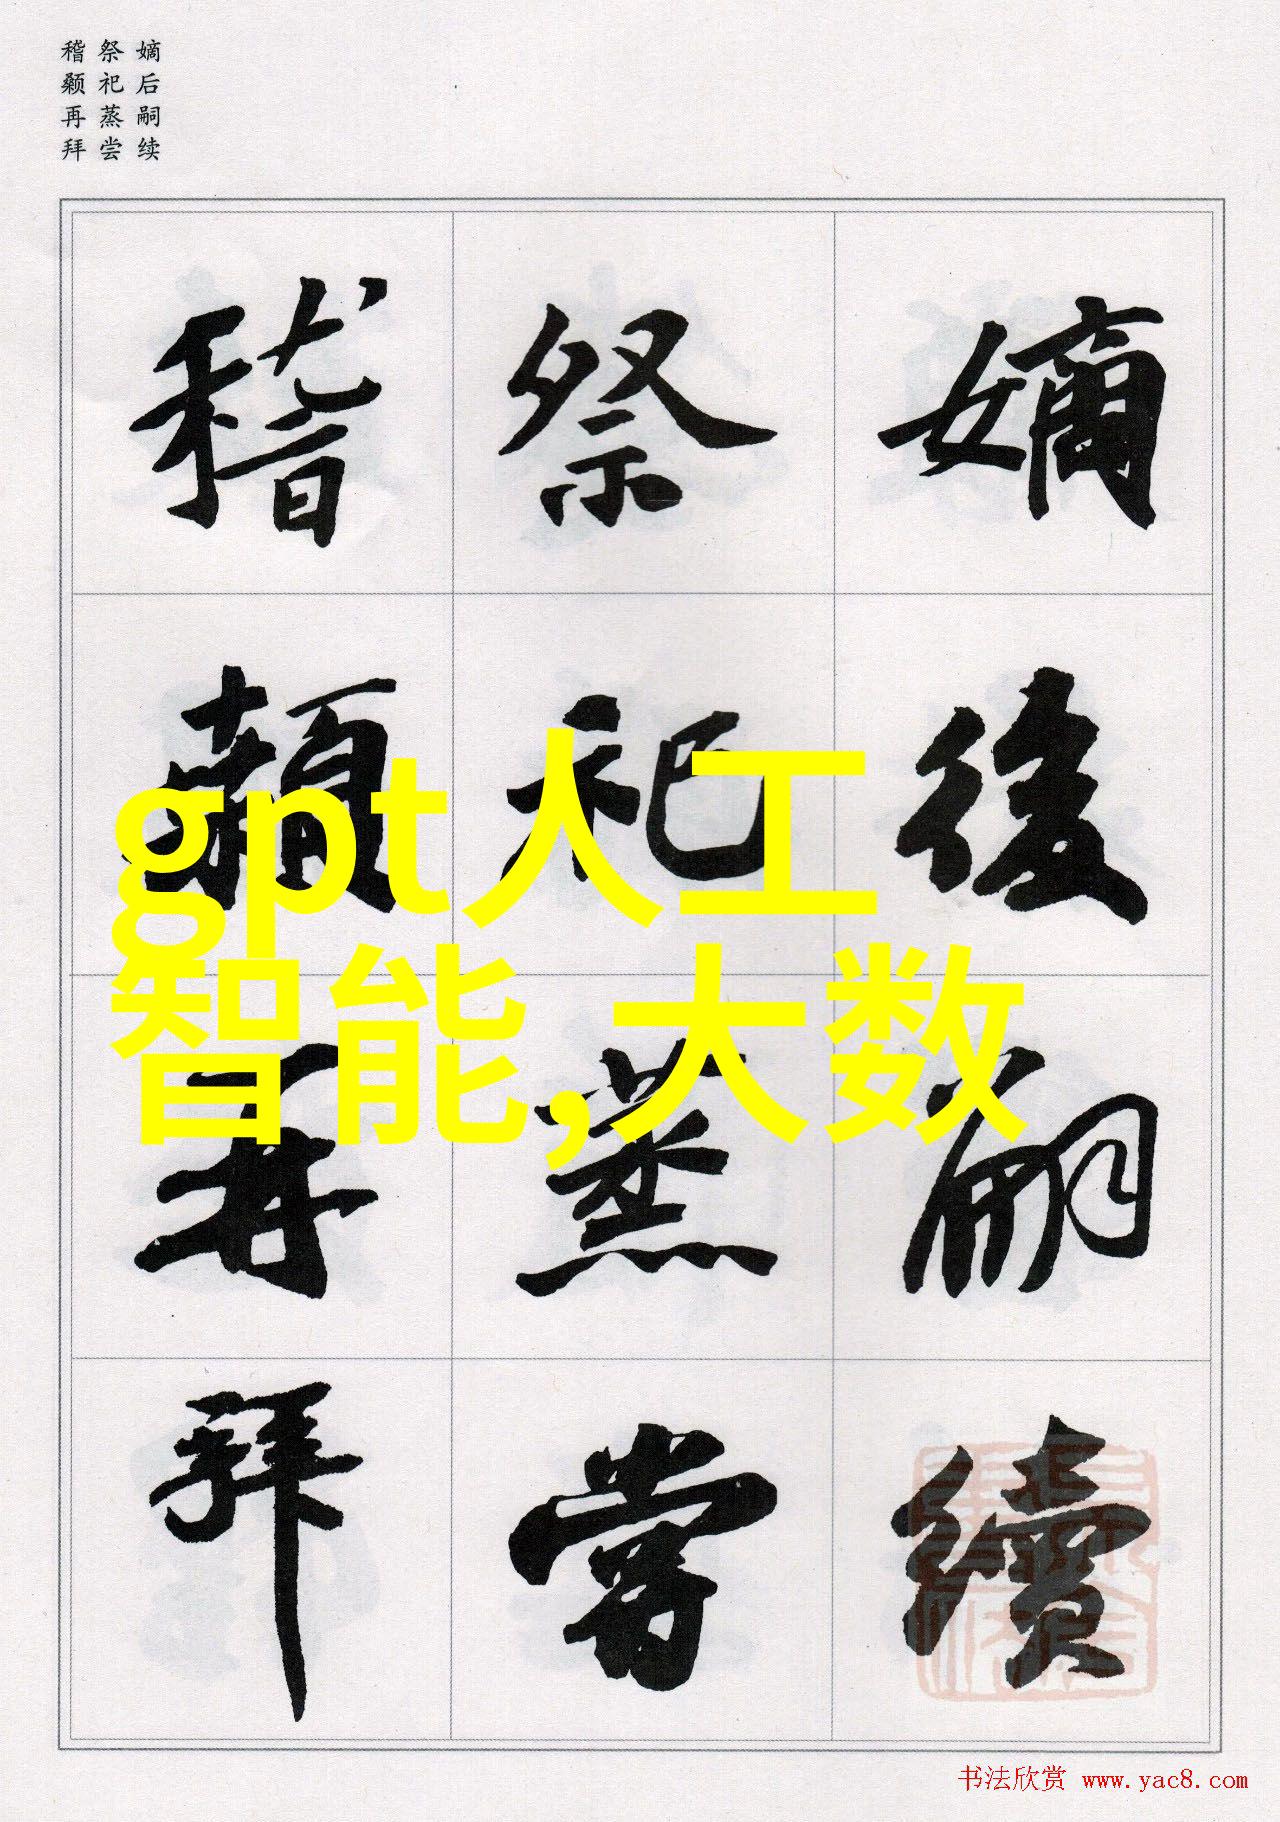 嫡后嗣续
祭祀蒸尝
稽颡再拜
嫡後嗣續
祭祀蒸嘗
稽顙再拜
gpt人工
智能,大数
书法欣赏 www.yac8.com